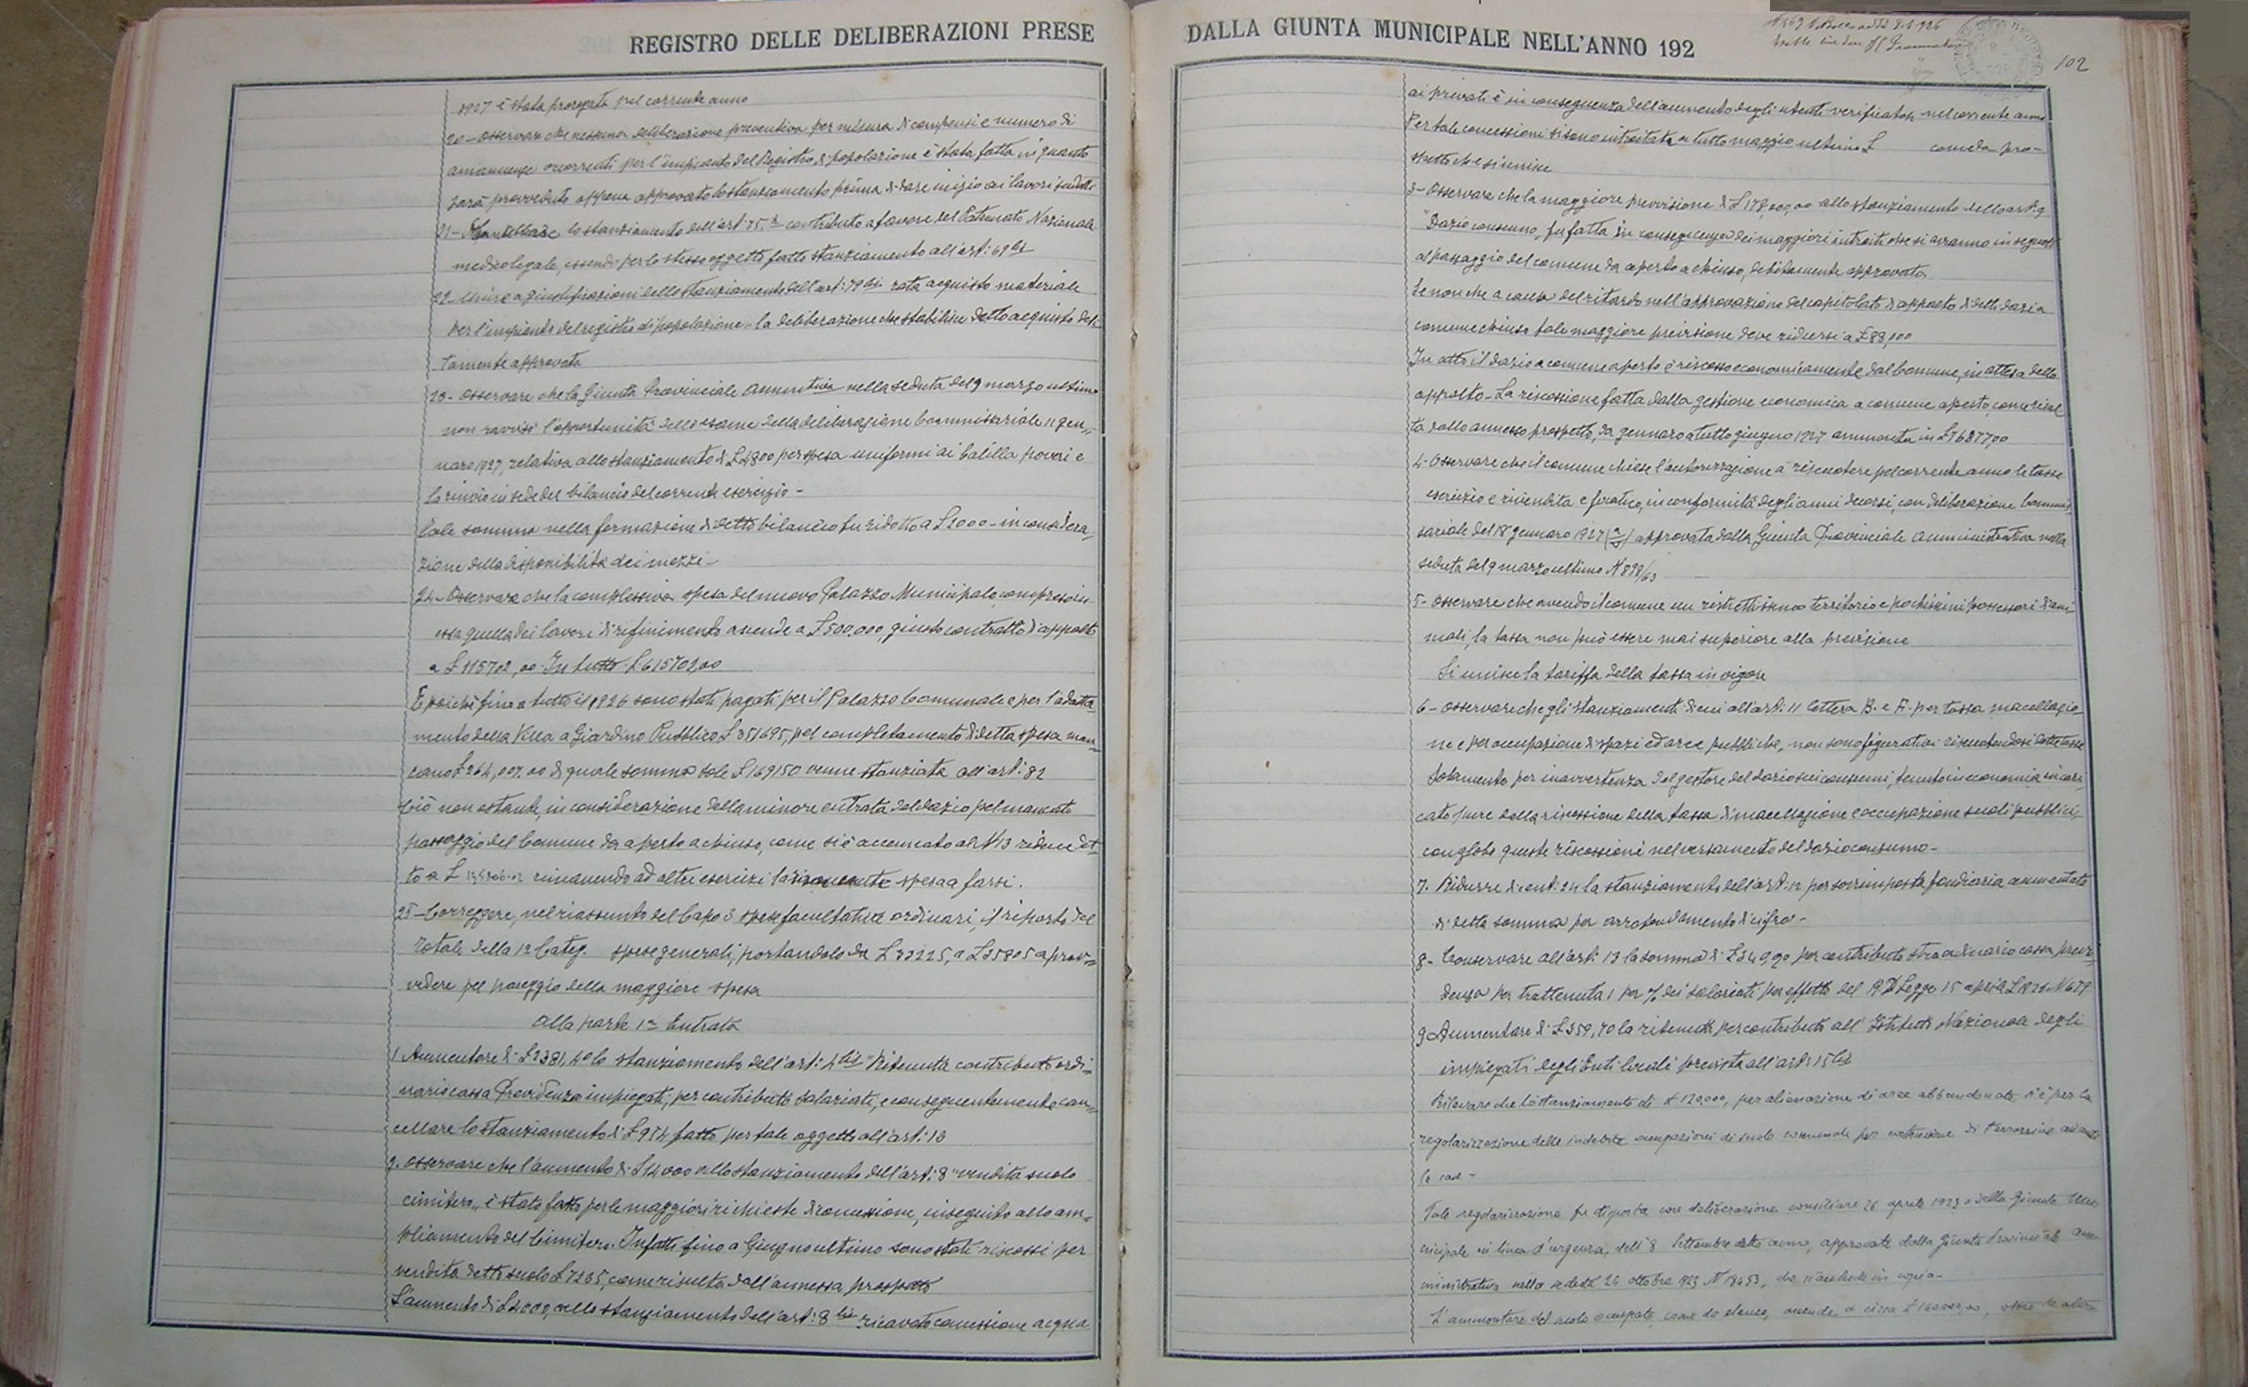 REGISTRO DELLE DELIBERAZIONI PRESE
1927 è stata prorogata pel corrente anno
20 - Osservare che nessuna deliberazione preventiva per misura di compensi e numero di
amanuensi occorrenti per l'impianto del Registro di popolazione è stata fatta in quanto
sarà provveduto appena approvato lo stanziamento prima di dare inizio ai lavori suddetti
21 - lo stanziamento dell'art: 75 contributo a favore del Patronato Nazionale
medico legale, essendo per lo stesso oggetto fatto stanziamento all'art: 69 bis
22 - Unire a giustificazioni dello stanziamento dell'art: 79 bis rata acquisto materiale
per l'impianto del registro di popolazione - la deliberazione che stabilisce detto acquisto debi
tamente approvata
23 - Osservare che la Giunta Provinciale Amm.tiva nella seduta del 9 marzo ultimo
non ravvisò l'opportunità dello esame della deliberazione Commissariale 11 gen=
naro 1927, relativa allo stanziamento di L 4800 per spesa uniformi ai balilla poveri e
la rinviò in sede del bilancio del corrente esercizio -
Tale somma nella formazione di detto bilancio fu ridotta a L 2000 - in considera,
zione della disponibilità dei mezzi -
24 - Osservare che la complessiva spesa del nuovo Palazzo Municipale, compresa in
essa quella dei lavori di rifinimento ascende a L 500,000, giusto contratto di appalto
a L 115702,00 In tutto L 615702,00
E poichè fino a tutto il 1926 sono stati pagati per il Palazzo Comunale e per l'adatta=
mento della Villa a Giardino Pubblico L 351695, pel completamento di detta spesa man=
cano L 264,007.00 di quale somma sole L 169150 venne stanziata all'art: 82
Ciò non ostante, in considerazione della minore entrata del dazio pel mancato
passaggio del Comune da aperto a chiuso, come si è accennato al N 13 riduce det=
to a L rimanendo ad altri esercizi la rimanente spesa a farsi.
25 - Correggere, nel riassunto del Capo 3 spese facultative ordinari, il riporto del
totale della 1a Categ. spese generali, portandolo da L 33225, a L 35805 a prov=
vedere pel pareggio della maggiore spesa
Alla parte 1a Entrata
1. Aumentare di L 2381,40 lo stanziamento dell'art: 4 bis "Ritenuta contributo ordi=
nario cassa Previdenza impiegati, per contributo salariati, e conseguentemente can=
cellare lo stanziamento di L 954 fatto per tale oggetto all'art: 18
2. Osservare che l'aumento di L 14000 allo stanziamento dell'art: 8 "vendita suolo
cimitero,, è stato fatto per le maggiori richieste di concessione, in seguito allo am=
pliamento del Cimitero. Infatti fino a Giugno ultimo sono stati riscossi per
vendita detto suolo L 7235, come risulta dall'annesso prospetto
L'aumento di L 2000, allo stanziamento dell'art: 8 bis ricavato concessione acqua
DALLA GIUNTA MUNICIPALE NELL'ANNO 192
102
ai privati è in conseguenza dell'aumento degli utenti verificatosi nel corrente anno
Per tale concessioni si sono introitate a tutto maggio ultimo L come da pro=
spetto che si unisce
3 - Osservare che la maggiore previsione di L 178,000,00 allo stanziamento dello art. 9
"Dazio consumo, fu fatta in conseguenza dei maggiori introiti che si avranno in seguito
al passaggio del comune da aperto a chiuso, debitamente approvato.
Se non che a causa del ritardo nell'approvazione del capitolato di appalto di detti dazi a
comune chiuso tale maggiore previsione deve ridursi a L 88,000
In atto il dazio a comune aperto è riscosso economicamente dal Comune, in attesa dello
appalto - La riscossione fatta dalla gestione economica a comune aperto come risul
ta dallo annesso prospetto, da gennaro a tutto giugno 1927 ammonta in L 76877,00
4 - Osservare che il comune chiese l'autorizzazione a riscuotere pel corrente anno le tasse
esercizio e rivendita e focatico, in conformità degli anni decorsi, con deliberazione Commis
sariale del 18 gennaro 1927 approvata dalla Giunta Provinciale Amministrativa nella
seduta del 9 marzo ultimo N 898/63
5 - Osservare che avendo il comune un ristrettissimo territorio e pochissimi possessori di ani
mali, la tassa non può essere mai superiore alla previsione
Si unisce la tariffa della tassa in vigore
6 - Osservare che gli stanziamenti di cui all'art: 11 lettera B. e F. per tassa macellazio
ne e per occupazione di spazi ed aree pubbliche, non sono figurativi riscuotendosi dette tasse
Solamente per inavvertenza del gestore del dazio sui consumi, tenuto in economia, incari
cato pure della riscossione della tassa di macellazione e occupazione suoli pubblici,
conglobò queste riscossioni nel versamento del dazio consumo -
7 - Ridurre di cent: 24 lo stanziamento dell'art: 12 per sovrimposta fondiaria aumentata
di detta somma per arrotondamento di cifra -
8 - Conservare all'art: 13 la somma di L 340,90 per contributo straordinario cassa previ=
denza per trattenuta 1 per % dei salariati per effetto del R.D. Legge 15 aprile 1926 N 679
9 Aumentare di L 359,70 la ritenuta per contributi all'Istituto Nazionale degli
impiegati degli Enti locali prevista all'art: 15 bis
Rilevare che lo stanziamento di L 120,000, per alienazione di aree abbandonate è per la
regolarizzazione delle indebite occupazioni di suolo comunale per costruzione di terrazzini avanti
le case -
Tale regolarizzazione fu disposta con deliberazione consiliare 26 aprile 1923 e della Giunta Mu
nicipale in linea d'urgenza, dell'8 Settembre detto anno, approvate dalla Giunta Provinciale Am
ministrativa nella seduta 26 ottobre 1923 N 18653, che si acclude in copia -
L'ammontare del suolo occupato, come da elenco, ascende a circa L